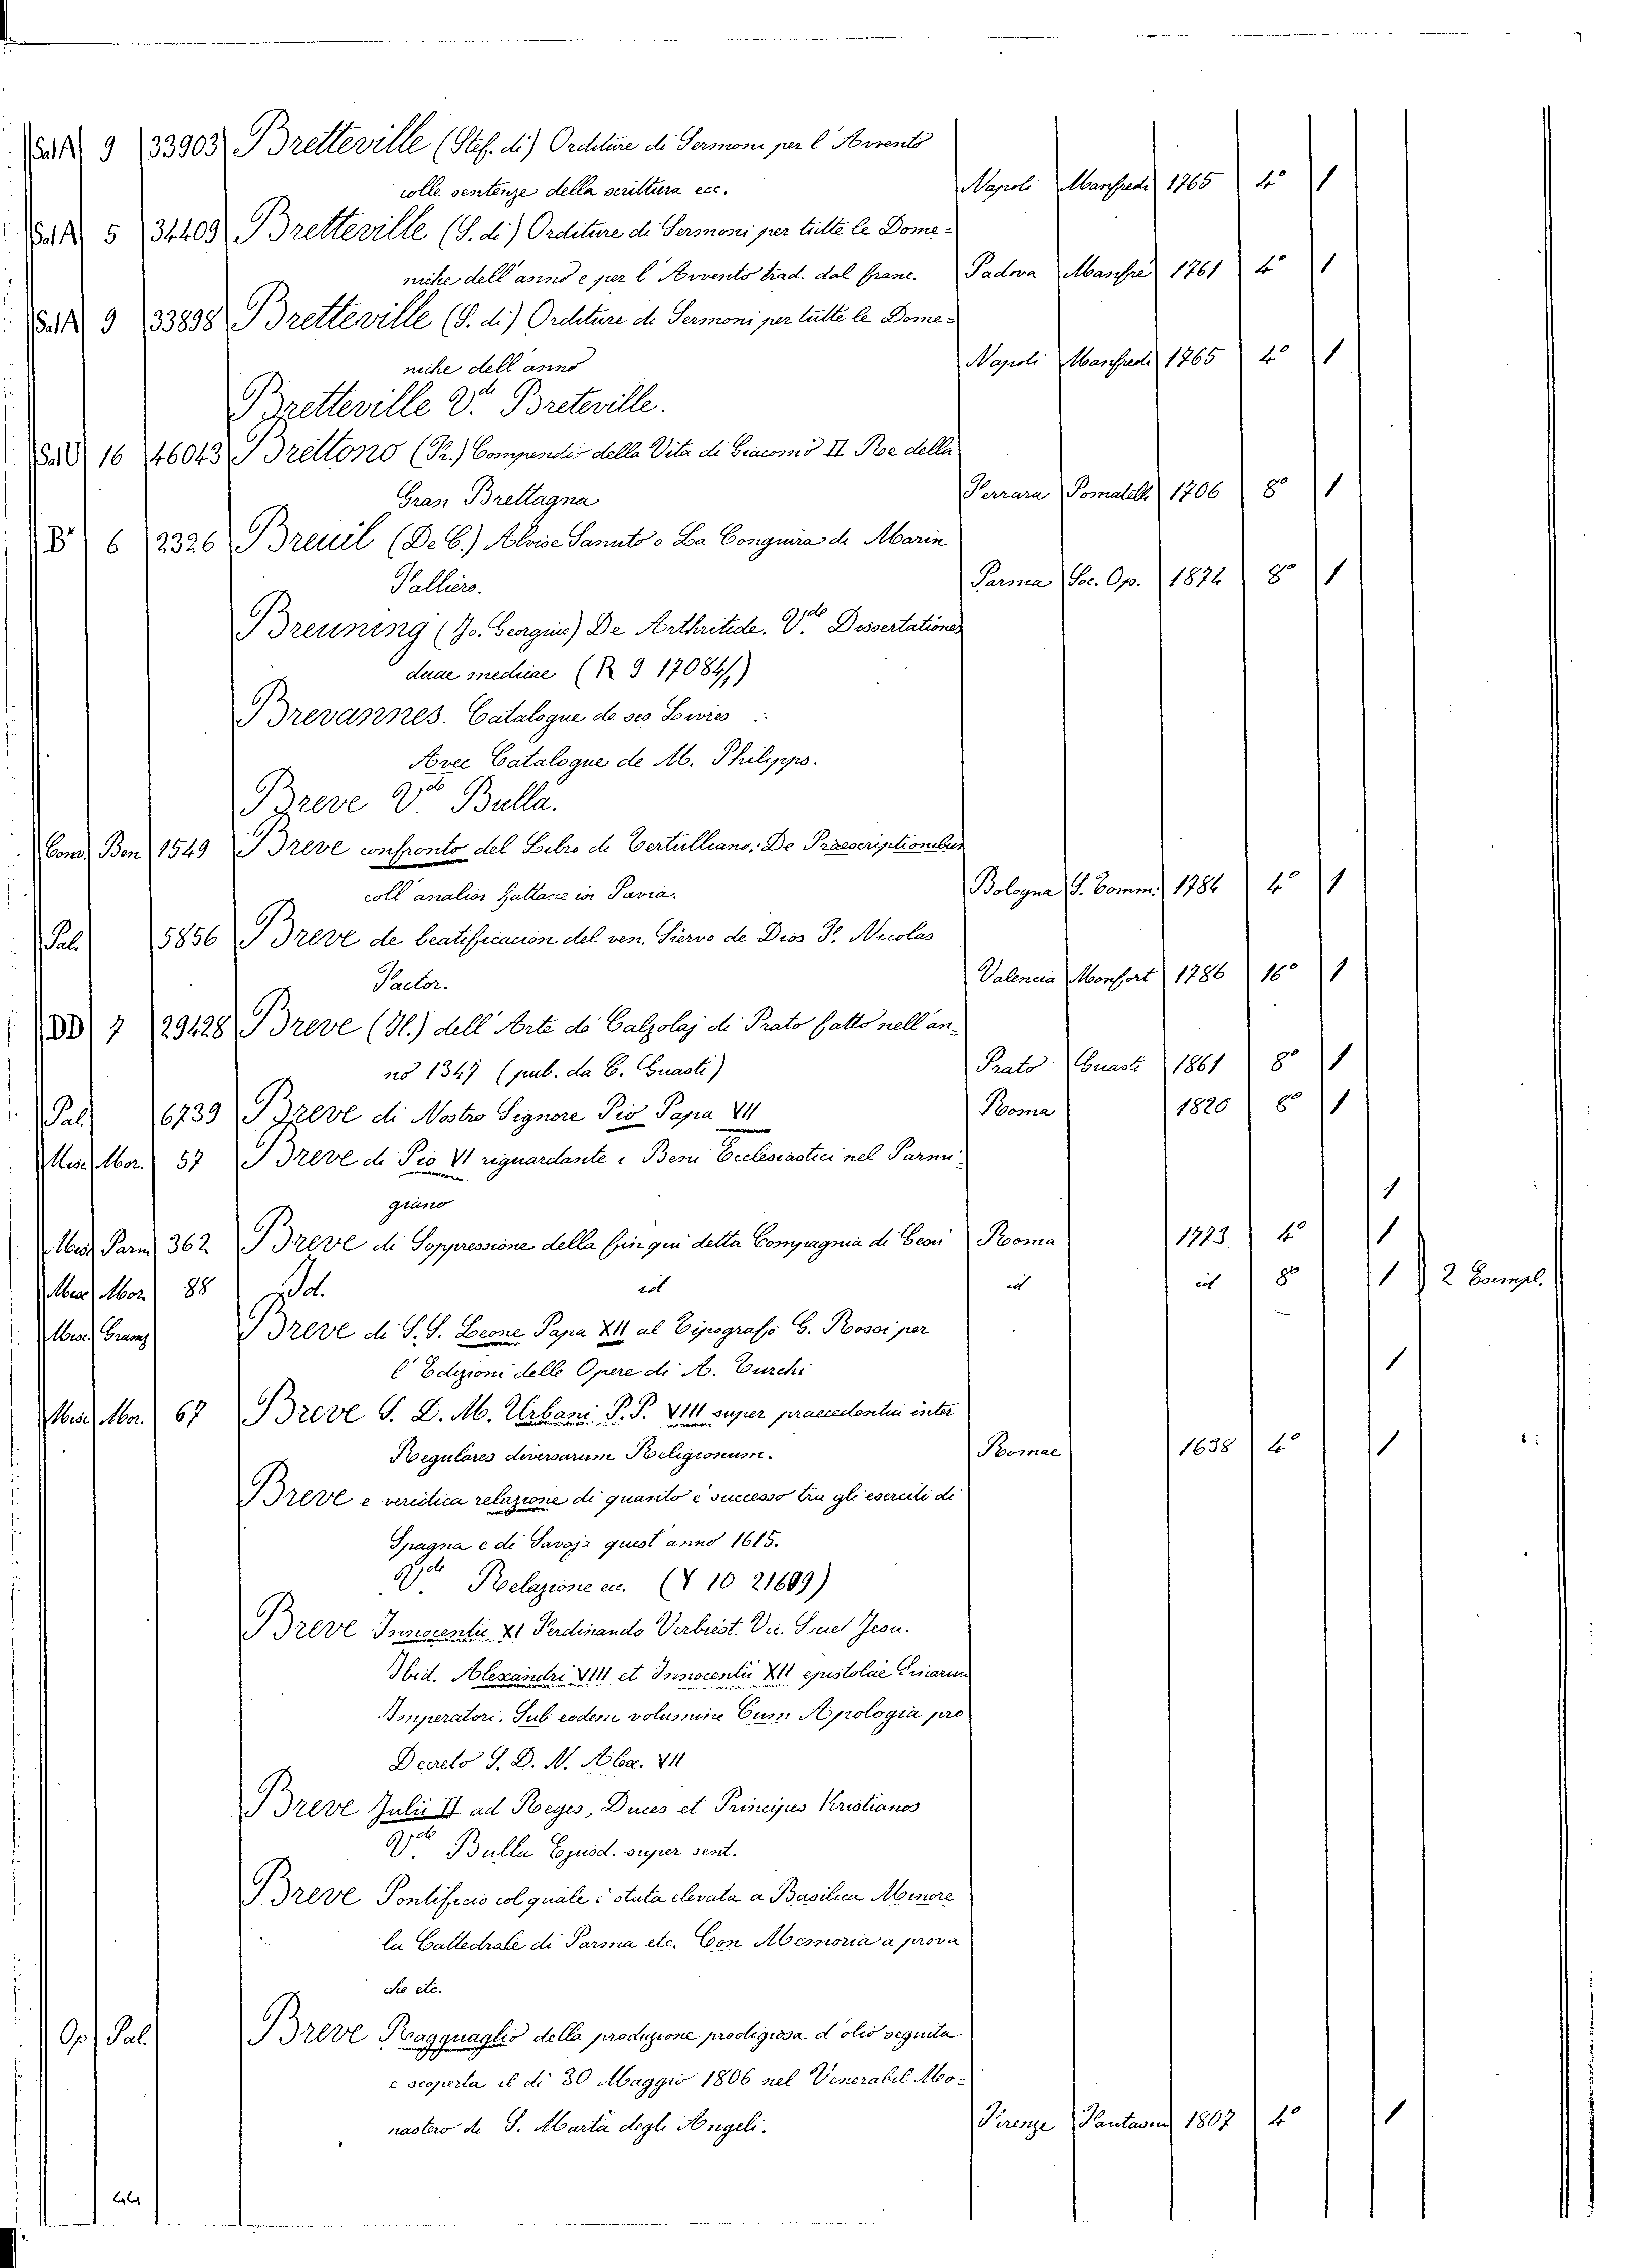 Sal. A 9 33903 Bretteville (Stef. di) Orditure di Sermoni per l'Avvento
colle sentenze della scrittura ecc. Napoli Manfredi 1765 4° 1
Sal. A 5 34409 Bretteville (S. di) Orditure di Sermoni per tutte le Dome-
niche dell'anno e per l'Avvento trad. dal franc. Padova Manfrè 1761 4° 1
Sal. A 9 33898 Bretteville (S. di) Orditure di Sermoni per tutte le Dome-
niche dell'anno Napoli Manfredi 1765 4° 1
Bretteville V.de Breteville.
Sal. 16 46043 Brettono (R.) Compendio della Vita di Giacomo II Re della
Gran Brettagna Ferrara Pomatelli 1706 8° 1
B* 6 2326 Breuil (De C.) Aloise Sanuto o La Congiura di Marin
Falliero. Parma Soc. Op. 1874 8° 1
Breuning (Jo. Georgius) De Arthritide. V.de Dissertationes
duae medicae (R 9 17084/1)
Brevannes. Catalogue de ses Livres
Avec Catalogue de M. Philipps.
Breve V.de Bulla.
Conv. Ben 1549 Breve confronto del Libro di Tertulliano: De Praescriptionibus
coll'analisi fattane in Pavia. Bologna S. Comm. 1784 4° 1
Pal. 5856 Breve de beatificacion del ven. Siervo de Dios F. Nicolas
Factor. Valencia Monfort 1786 16° 1
DD 7 29428 Breve (Il) dell'Arte de' Calzolaj di Prato fatto nell'an-
no 1347 (pub. da C. Guasti) Prato Guasti 1861 8° 1
Pal. 6739 Breve di Nostro Signore Pio Papa VII Roma 1820 8° 1
Misc. Mor. 57 Breve di Pio VI riguardante i Beni Ecclesiastici nel Parmi-
giano 1
Misc. Parm 362 Breve di Soppressione della fin qui detta Compagnia di Gesù Rooma 1773 4° 1
Misc. Mor. 88 Id. id id id 8° 1 2 Esempl.
Misc. Breve di S. S. Leone Papa XII al Tipografo G. Rossi per
l'Edizioni delle Opere di A. Turchi 1
Misc. Mor. 67 Breve S. D. M. Urbani P. P. VIII super praecedentia inter
Regulares diversarum Religionum. Romae 1638 4° 1
Breve e veridica relazione di quanto è successo tra gli eserciti di
Spagna e di Savoja quest'anno 1615.
V.de Relazione ec. (Y 10 21609)
Breve Innocentii XI Ferdinando Verbiest. Vic. Societ Jesu.
Ibid. Alexandri VIII et Innocentii XII epistolae Sinarum
Imperatori. Sub eodem volumine Cum Apologia pro
Decreto S. D. N. Alex. VII
Breve Julii II ad Reges, Duces et Principes Kristianos
V.de Bulla Ejusd. super sent.
Breve Pontificio col quale è stata elevata a Basilica Minore
la Cattedrale di Parma etc. Con Memoria a prova
che etc.
Op. Pal. Breve Ragguaglio della produzione prodigiosa d'olio seguita
e scoperta il dì 30 Maggio 1806 nel Venerabil Mo-
nastero di S. Marta degli Angeli. Firenze Pantosini 1807 4° 1